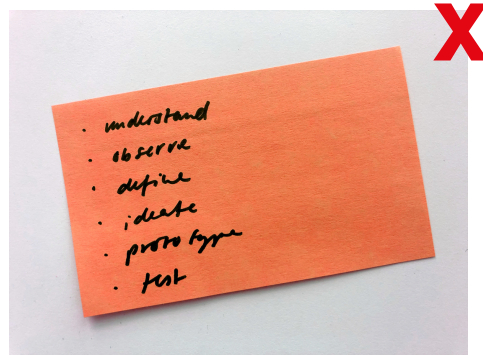 X
· understand
· observe
· define
· ideate
· prototype
· test